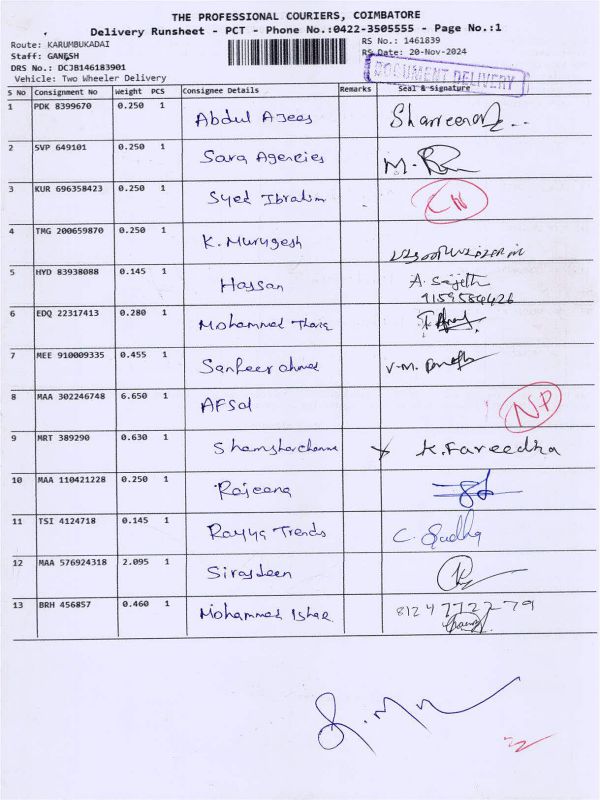 THE PROFESSIONAL COURIERS, COIMBATORE
Delivery Runsheet - PCT - Phone No.:0422-3505555 - Page No.:1
Route: KARUMBUKADAI RS No.: 1461839
Staff: GANESH RS Date: 20-Nov-2024
DRS No.: DCJB146183901
DOCUMENT DELIVERY
Vehicle: Two Wheeler Delivery
S No Consignment No Weight PCS Consignee Details Remarks Seal & Signature
1 PDK 8399670 0.250 1 Abdul Azees
2 SVP 649101 0.250 1 Sara Agencies
3 KUR 696358423 0.250 1 Syed Ibrahim
4 TMG 200659870 0.250 1 K. Murugesh
5 HYD 83938088 0.145 1 Hassan A. Sajeth
9159584426
6 EDQ 22317413 0.280 1 Mohammed
7 MEE 910009335 0.455 1 Sanfeer ahmed
8 MAA 302246748 6.650 1 AFSal NP
9 MRT 389290 0.630 1 K. Fareedha
10 MAA 110421228 0.250 1 Rajeena
11 TSI 4124718 0.145 1 Rayya Trends C. Sudha
12 MAA 576924318 2.095 1 Sirajdeen
13 BRH 456857 0.460 1 Mohammed